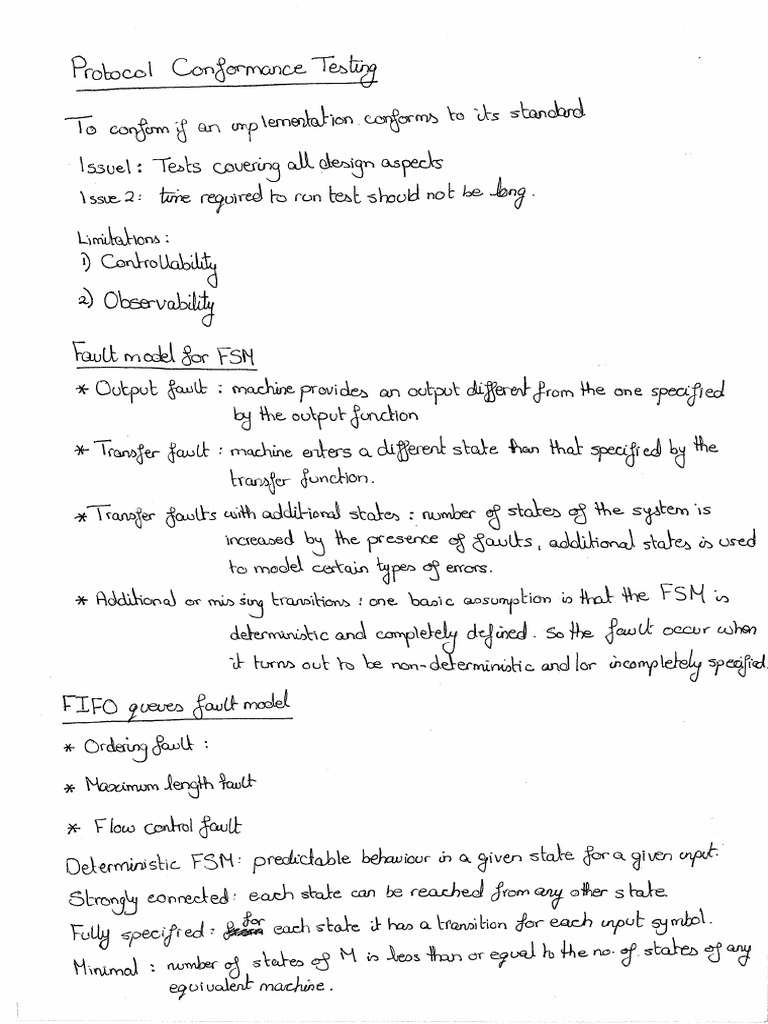 Protocol Conformance Testing
To conform if an implementation conforms to its standard
Issue1: Tests covering all design aspects
Issue 2: time required to run test should not be long.
Limitations:
1) Controllability
2) Observability
Fault model for FSM
* Output fault : machine provides an output different from the one specified
by the output function
* Transfer fault : machine enters a different state than that specified by the
transfer function.
* Transfer faults with additional states : number of states of the system is
increased by the presence of faults, additional states is used
to model certain types of errors.
* Additional or missing transitions : one basic assumption is that the FSM is
deterministic and completely defined. So the fault occur when
it turns out to be non-deterministic and/or incompletely specified.
FIFO queues fault model
* Ordering fault :
* Maximum length fault
* Flow control fault
Deterministic FSM: predictable behaviour in a given state for a given input.
Strongly connected: each state can be reached from any other state.
Fully specified: for each state it has a transition for each input symbol.
Minimal : number of states of M is less than or equal to the no. of states of any
equivalent machine.